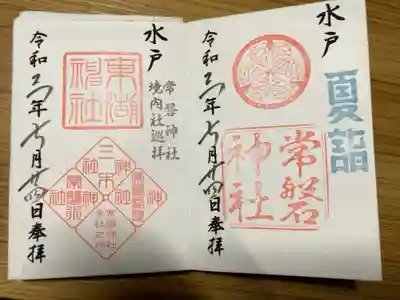 水戸
夏詣
常磐
神社
令和六年七月廿四日奉拝
水戸
常磐神社
境内社巡拝
東湖
神社
三木
神社
令和六年七月廿四日奉拝